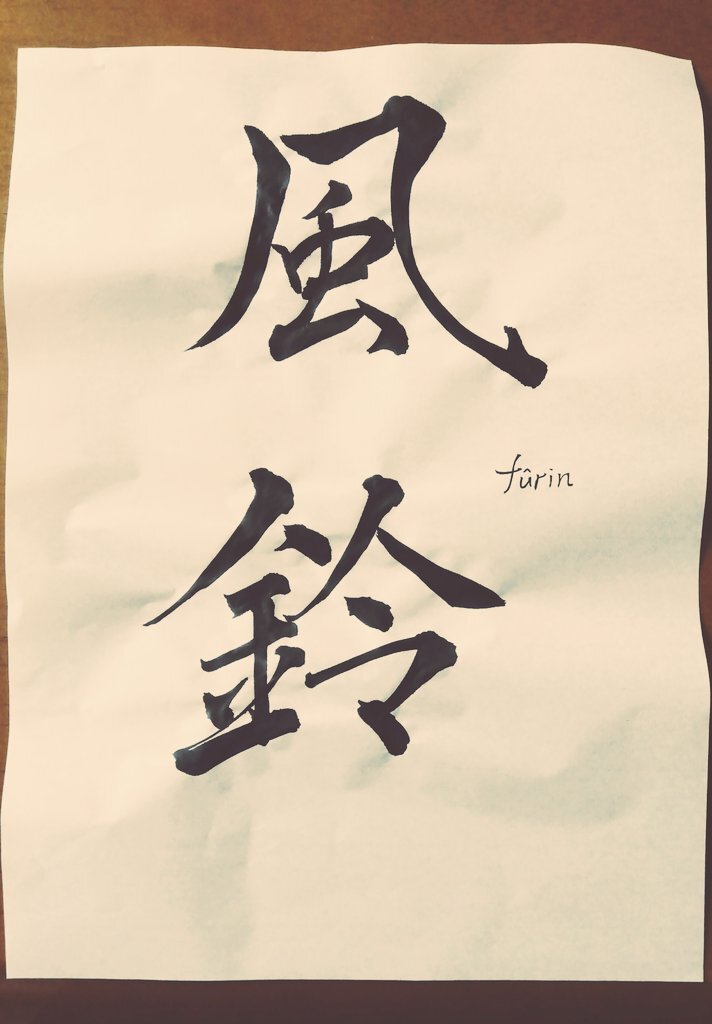 風
鈴
fûrin